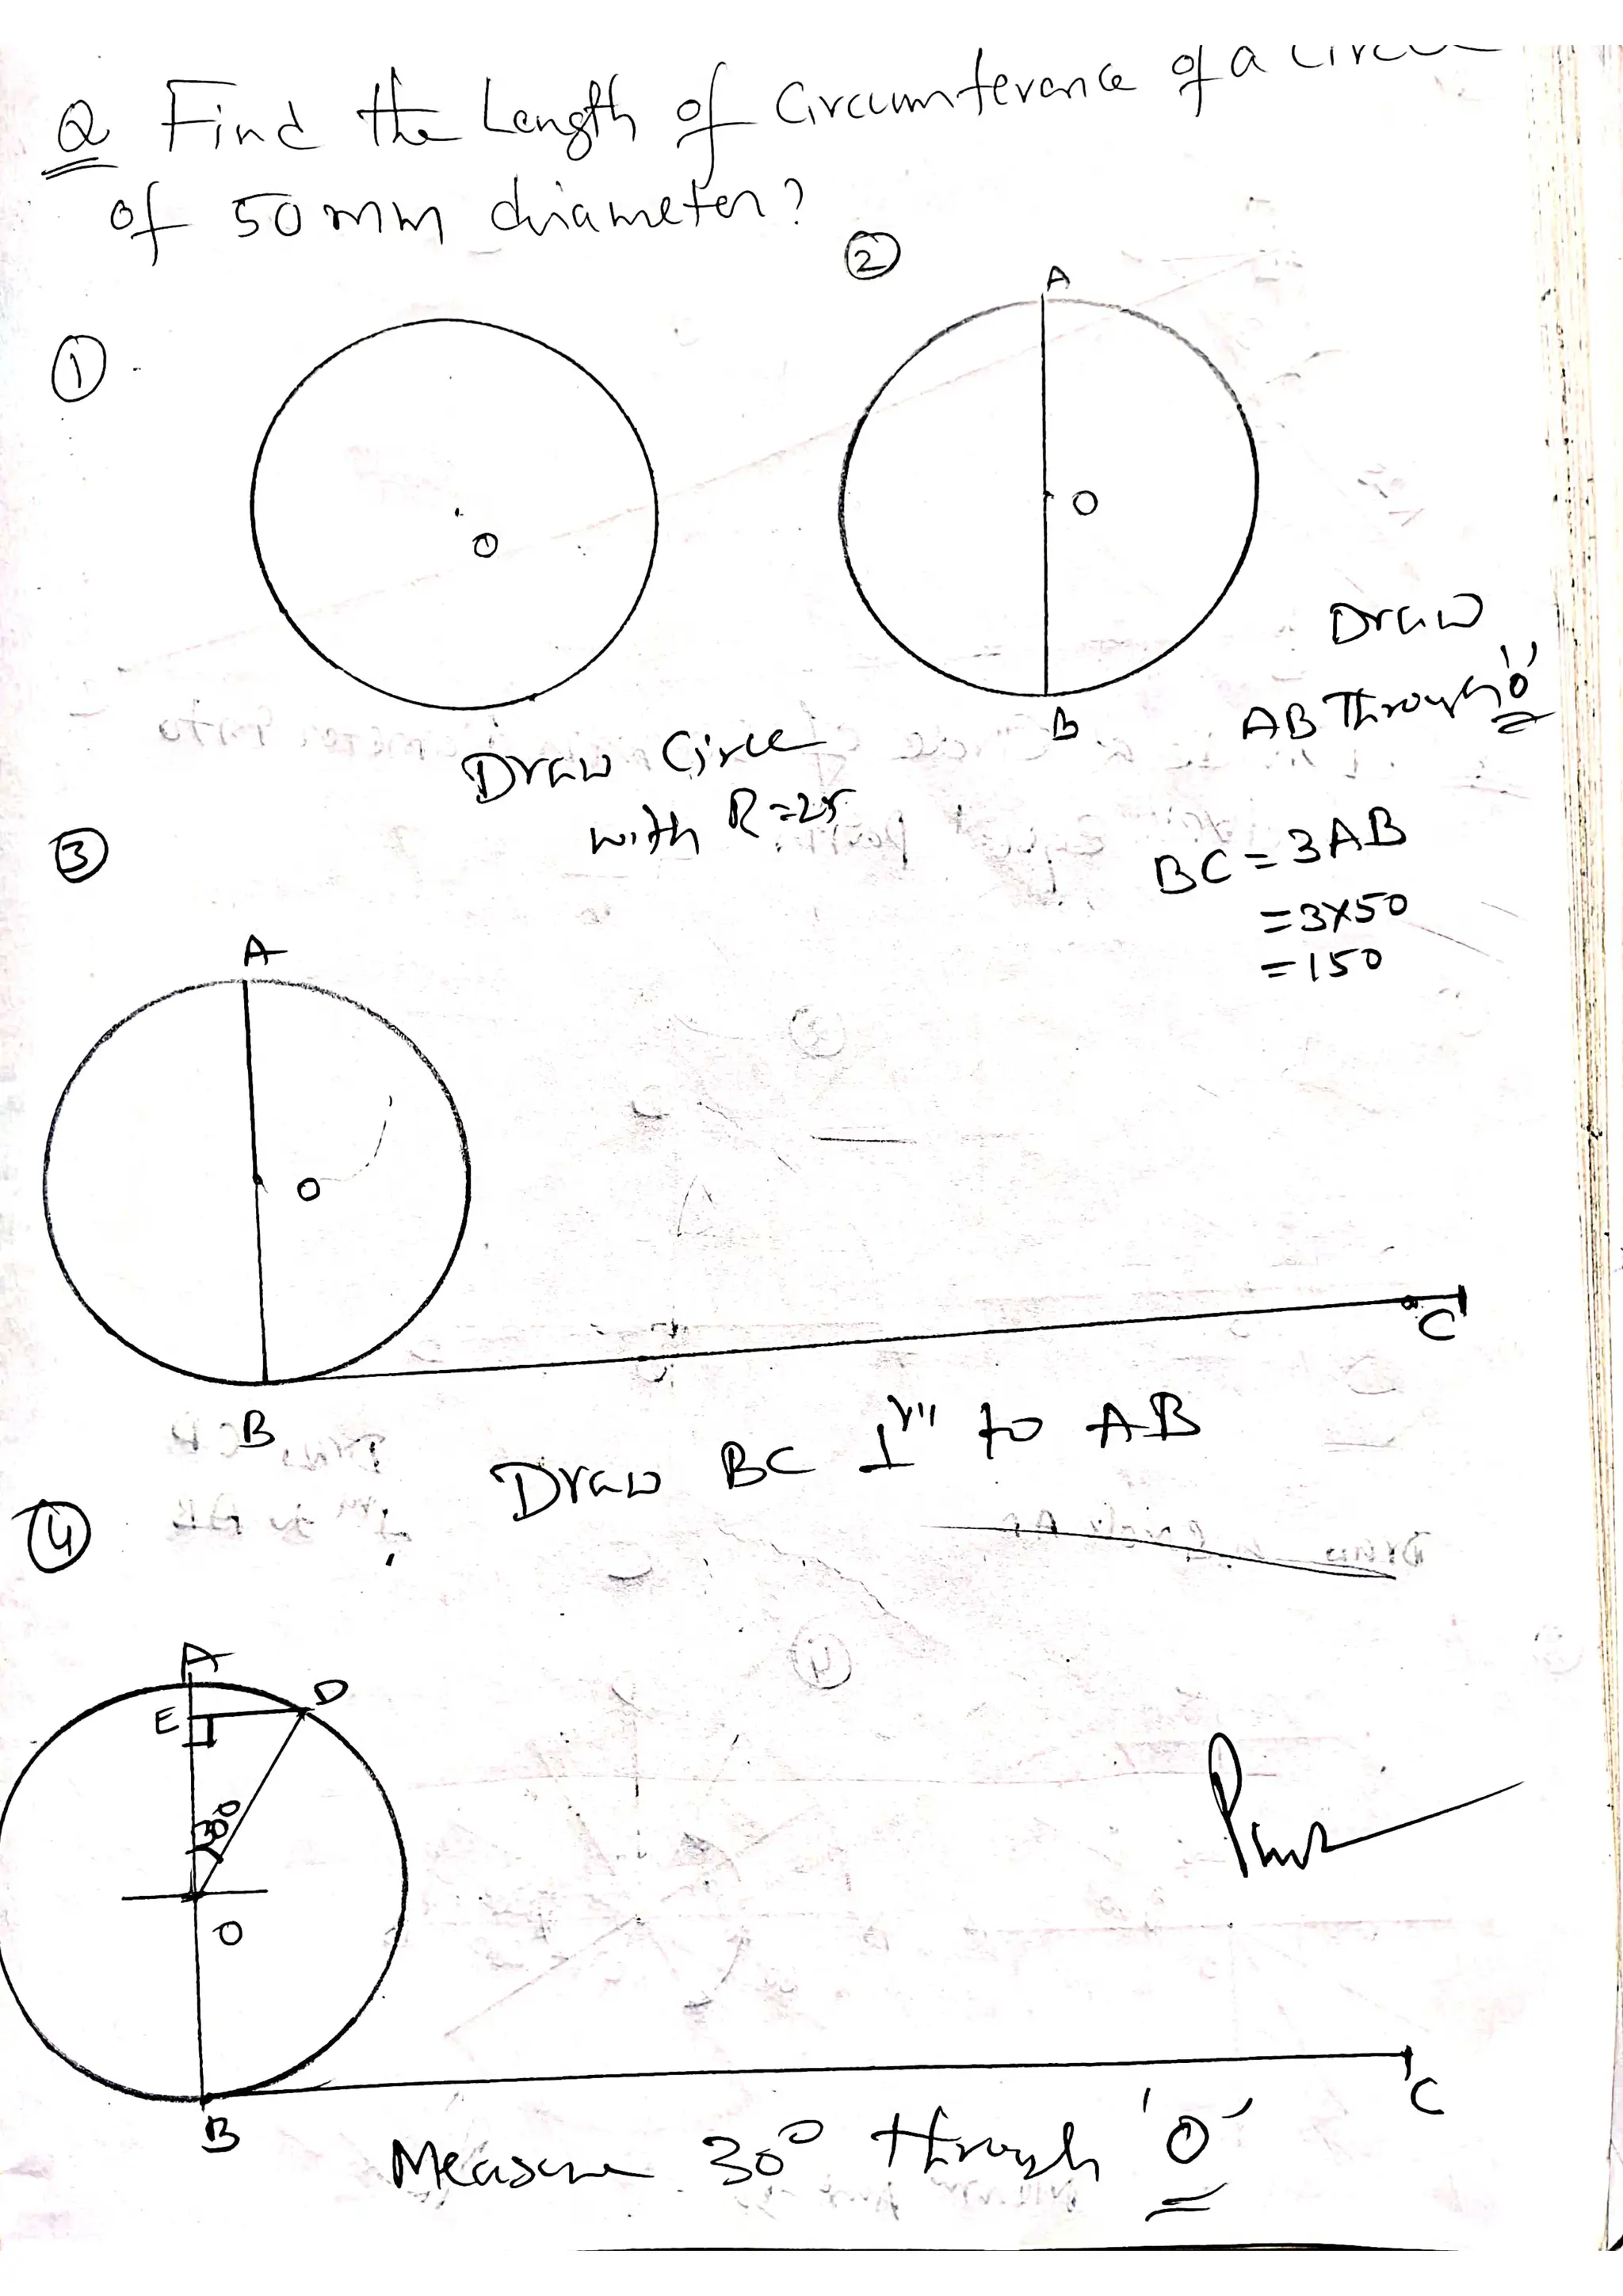 Q Find the Length of Circumference of a Circle
of 50 mm diameter?
①
O
②
A
O
B
Draw
AB Through 'O'
Draw Circe
with R=25
BC = 3AB
= 3×50
= 150
③
A
O
B
C
Draw BC ⊥r" to AB
④
A
E
D
30°
O
B
C
Measure 30° through 'O'